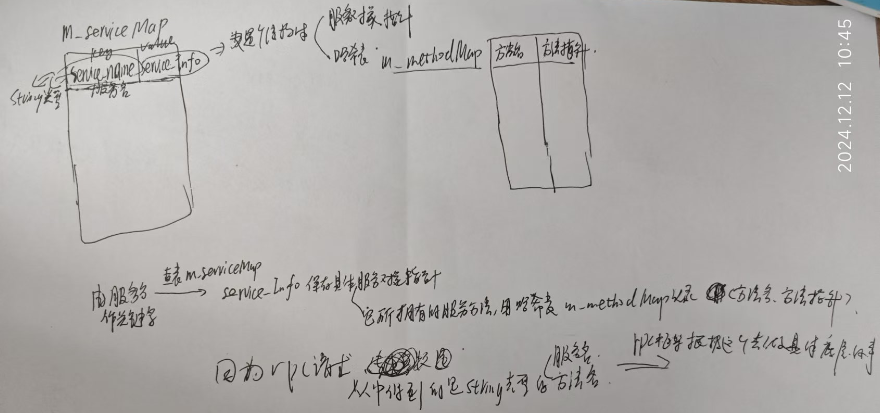 m_serviceMap
key value
service_name service_Info
服务名
string类型
这是个结构体
服务对象指针
哈希表 m_methodMap
方法名 方法指针
2024.12.12 10:45
由服务名 查表m_serviceMap
作关键字 service_Info 保存具体服务对象指针
它所拥有的服务方法,用哈希表 m_methodMap记录 (方法名、方法指针)
因为rpc请求
从中得到的是string类型的 服务名
方法名
rpc框架根据这个去做具体底层的事